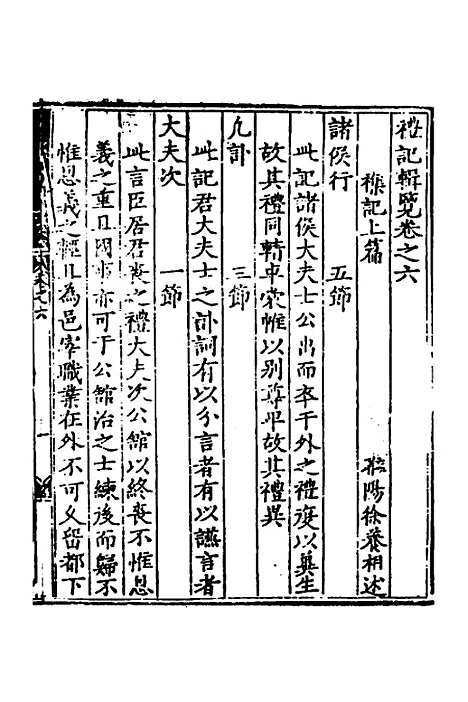 禮記輯覽卷之六
雜記上篇　　睢陽徐養相述
諸侯行　　五節
此記諸侯大夫士公出而卒于外之禮復以兾生
故其禮同輤車裳帷以別尊卑故其禮異
凡訃　　三節
此記君大夫士之訃詞有以分言者有以讌言者
大夫次　　一節
此言臣居君喪之禮大夫次公館以終喪不惟恩
義之重且國事亦可于公館治之士練後而歸不
惟恩義之輕且為邑宰職業在外不可久留都下
卷之六
一